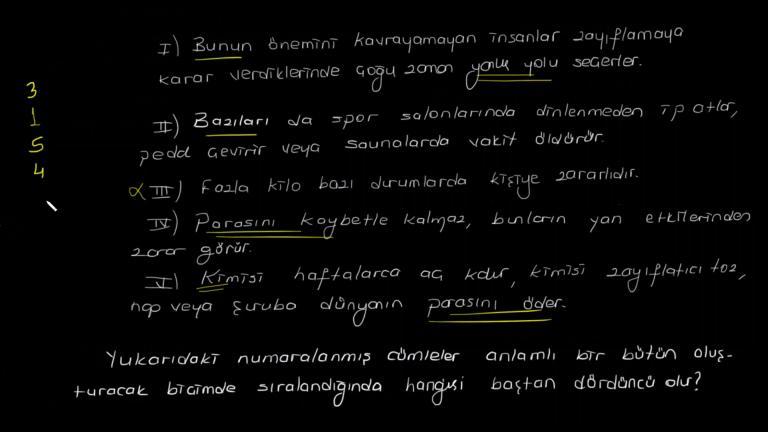 I) Bunun önemini kavrayamayan insanlar zayıflamaya
karar verdiklerinde çoğu zaman yanlış yolu seçerler.
3
1
II) Bazıları da spor salonlarında dinlenmeden ip atlar,
5
pedal çevirir veya saunalarda vakit öldürür.
4
α III) Fazla kilo bazı durumlarda kişiye zararlıdır.
IV) Parasını kaybetmekle kalmaz, bunların yan etkilerinden
zarar görür.
V) Kimisi haftalarca aç kalır, kimisi zayıflatıcı toz,
hap veya şuruba dünyanın parasını öder.
Yukarıdaki numaralanmış cümleler anlamlı bir bütün oluş-
turacak biçimde sıralandığında hangisi baştan dördüncü olur?